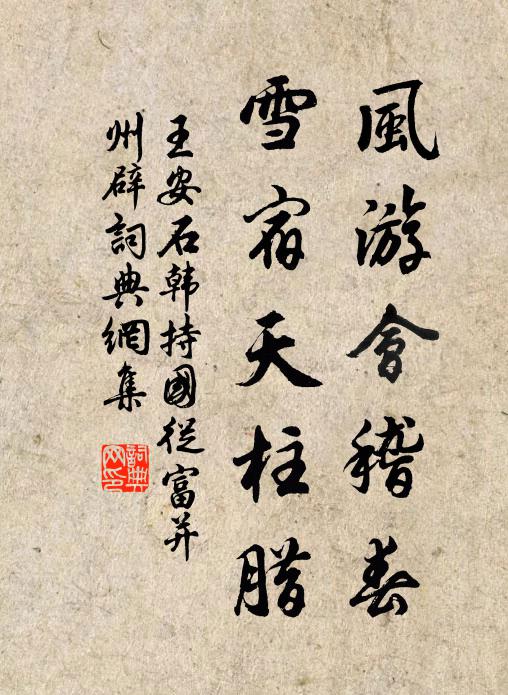 風游會稽春
雪宿天柱腊
王安石韩持國從富并
州辟詞典網集
詞典
网印